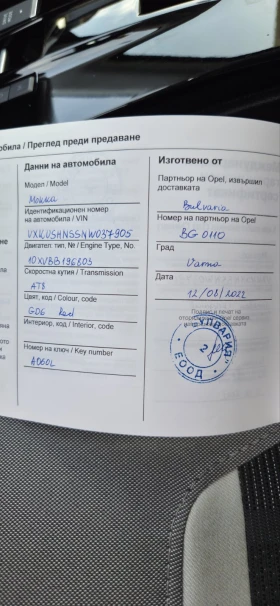 обила / Преглед преди предаване
Данни на автомобила
Модел / Model
Mokka
Идентификационен номер
на автомобила / VIN
VXKUSHNSSNW037905
Двигател. тип, № / Engine Type, No.
10XVBB196805
Скоростна кутия / Transmission
AT8
Цвят, код / Colour, code
G06 Red
Интериор, код / Interior, code
Номер на ключ / Key number
A060L
Изготвено от
Партньор на Opel, извършил
доставката
Bulvaria
Номер на партньор на Opel
BG 0110
Град
Varna
Дата
12/08/2022
Подпис и печат на
"УЛПВАРИЯ"
ЕООД